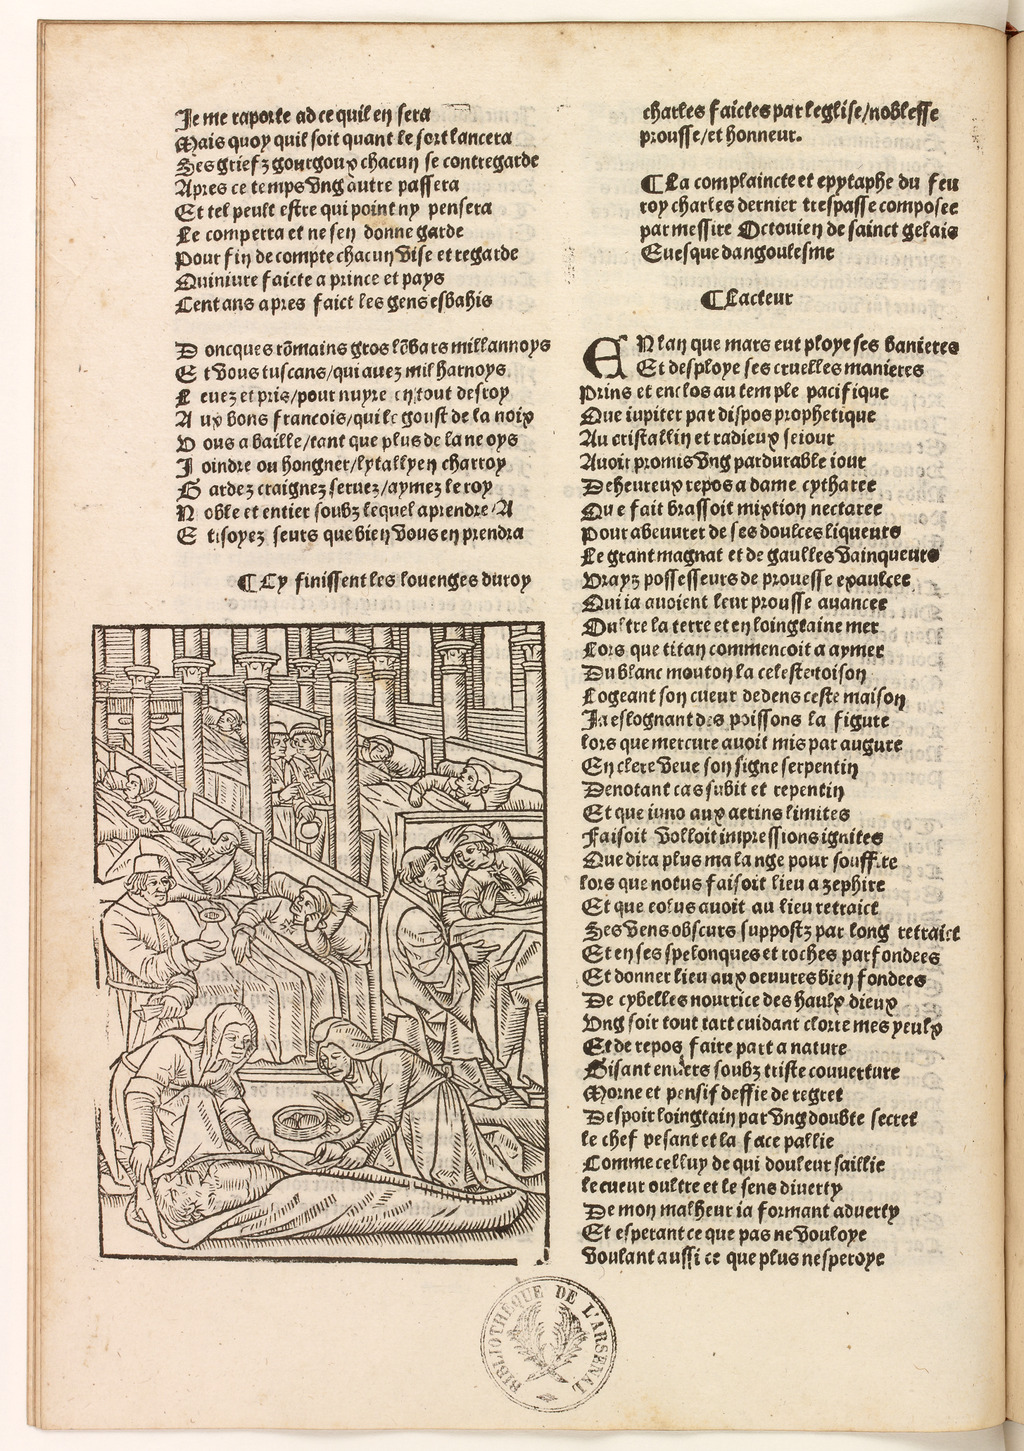 Je me raporte ad ce quil en sera
Mais quoy quil soit quant le sort lancera
Ses griefz gourgoux chacun se contregarde
Apres ce temps vng autre passera
Et tel peult estre qui point ny pensera
Le comperra et ne sen donne garde
Pour fin de compte chacun vise et regarde
Quiniure faicte a prince et pays
Cent ans apres faict les gens esbahis
Doncques rōmains gros lōbars millannoys
Et vous tuscans/qui auez mil harnoys
Leuez et pris/pour nuyre en tout desroy
Aux bons francois/qui le goust de la noix
Vous a baille/tant que plus de la ne oys
Joindre ou hongner/lytallyen charroy
Gardez craignez seruez/aymez le roy
Noble et entier soubz lequel aprendre/A
Et soyez seurs que bien vous en prendra
¶ Cy finissent les louenges du roy
charles faictes par leglise/noblesse
prousse/et honneur.
¶ La complaincte et epytaphe du feu
roy charles dernier trespasse composee
par messire Octouien de sainct gelais
Euesque dangoulesme
¶ Lacteur
EN lan que mars eut ploye ses banieres
Et desploye ses cruelles manieres
Prins et enclos au temple pacifique
Que iupiter par dispos prophetique
Au cristallin et radieux seiour
Auoit promis vng pardurable iour
De heureux repos a dame cytharee
Que fait brassoit mixtion nectaree
Pour abeuurer de ses doulces liqueurs
Le grant magnat et de gaulles vainqueurs
Vrayz possesseurs de prouesse exaulcee
Qui ia auoient leur prousse auancee
Oultre la terre et en loingtaine mer
Lors que titan commencoit a aymer
Du blanc mouton la celeste toison
Logeant son cueur dedens ceste maison
Ja eslognant des poissons la figure
lors que mercure auoit mis par augure
En clere veue son signe serpentin
Denotant cas subit et repentin
Et que iuno aux aerins limites
Faisoit volloit impressions ignites
Que dira plus ma lange pour souffire
lors que notus faisoit lieu a zephire
Et que eolus auoit au lieu retraict
Ses vens obscurs suppostz par long retraict
Et en ses spelonques et roches parfondees
Et donner lieu aux oeuures bien fondees
De cybelles nourrice des haulx dieux
Vng soir tout tart cuidant clorre mes yeulx
Et de repos faire part a nature
Gisant enuers soubz triste couuerture
Morne et pensif deffie de regret
Despoir loingtain par vng double secret
le chef pesant et la face pallie
Comme celluy de qui douleur saillie
le cueur oultre et le sens diuerty
De mon malheur ia formant aduerty
Et esperant ce que pas ne vouloye
Voulant aussi ce que plus nesperoye
BIBLIOTHÈQUE DE L'ARSENAL